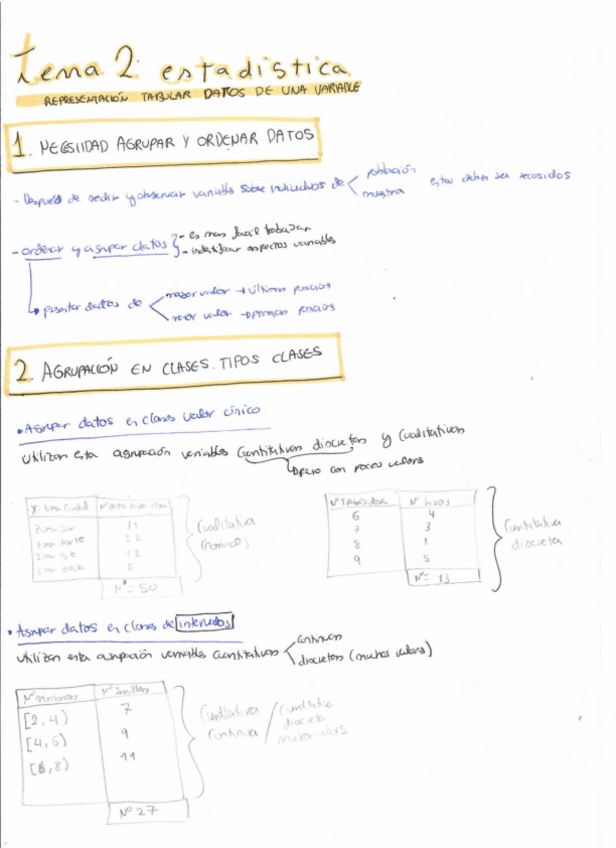 tema 2: estadistica
REPRESENTACIÓN TABULAR DATOS DE UNA VARIABLE
1. NECESIDAD AGRUPAR Y ORDENAR DATOS
- Después de medir y observar variables sobre individuos de
población
muestra
estos deben ser recogidos
- ordenar y agrupar datos
- es mas facil trabajar
- indentificar aspectos variables
presentar datos de
mayor valor → últimas posicios
menor valor → primeras posicios
2. AGRUPACIÓN EN CLASES. TIPOS CLASES
• Agrupar datos en clases valor único
utilizan esta agrupación variables cuantitativas discretas y cualitativas
pero con pocos valores
X: zona ciudad
zona sur 11
zona norte 22
zona este 12
zona oeste 5
Nº = 50
cualitativa
(nominal)
Nº Trabajadores Nº hijos
6 4
7 3
8 1
9 5
Nº = 13
cuantitativa
discreta
• Agrupar datos en clases de intervalos
utilizan esta agrupación variables cuantitativas
continuas
discretas (muchos valores)
[2,4) 7
[4,6) 9
[6,8) 11
Nº 27
continua /
cuantitativa
discreta
muchos valores